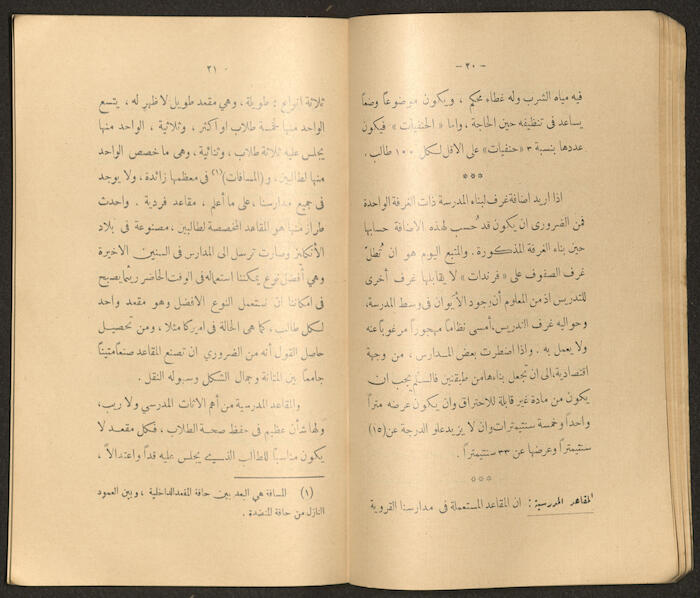 — ٢٠ —
فيه مياه الشرب وله غطاء محكم ، ويكون موضوعاً وضعاً
يساعد فى تنظيفه حين الحاجة ، واما « الحنفيات » فيكون
عددها بنسبة ٣ «حنفيات» على الاقل لكل ١٠٠ طالب.
***
اذا اريد اضافة غرف لبناء المدرسة ذات الغرفة الواحدة
فمن الضرورى ان يكون قد حُسب لهذه الاضافة حسابها
حين بناء الغرفة المذكورة . والمتبع اليوم هو ان تُطلّ
غرف الصفوف على «فرندات» لا يقابلها غرف أخرى
للتدريس اذ من المعلوم أن وجود الأيوان فى وسط المدرسة،
وحواليه غرف التدريس، أمسى نظاماً مهجوراً مرغوباً عنه
ولا يعمل به . واذا اضطرت بعض المدارس ، من وجهة
اقتصادية، الى ان تجعل بناءها من طبقتين فالسلّم يجب ان
يكون من مادة غير قابلة للاحتراق وان يكون عرضه متراً
واحداً وخمسة سنتيمترات وان لا يزيد علو الدرجة عن (١٥)
سنتيمتراً وعرضها عن ٣٣ سنتيمتراً .
***
المقاعد المدرسية : ان المقاعد المستعملة فى مدارسنا القروية
٢١
ثلاثة انواع : طويلة ، وهي مقعد طويل لا ظهر له ، يتسع
الواحد منها لخمسة طلاب او أكثر ، وثلاثية ، الواحد منها
يجلس عليه ثلاثة طلاب ، وثنائية ، وهى ما خصص الواحد
منها لطالبين ، و (المسافات)(١) فى معظمها زائدة ، ولا يوجد
فى جميع مدارسنا ، على ما أعلم ، مقاعد فردية . واحدث
طراز منها هو المقاعد المخصصة لطالبين ، مصنوعة فى بلاد
الأنكليز وصارت ترسل الى المدارس فى السنين الاخيرة
وهى أفضل نوع يمكننا استعماله فى الوقت الحاضر ريثما يصبح
فى امكاننا ان نستعمل النوع الافضل وهو مقعد واحد
لكل طالب ، كما هى الحالة فى اميركا مثلا ، ومن تحصيل
حاصل القول أنه من الضروري ان تصنع المقاعد صنعاً متيناً
جامعاً بين المتانة وجمال الشكل وسهولة النقل .
والمقاعد المدرسية من أهم الاثاث المدرسي ولا ريب،
ولها شأن عظيم فى حفظ صحة الطلاب ، فكل مقعد لا
يكون مناسباً للطالب الذي يجلس عليه قداً واعتدالاً ،
(١) المسافة هي البعد بين حافة المقعد الداخلية ، وبين العمود
النازل من حافة المنضدة .